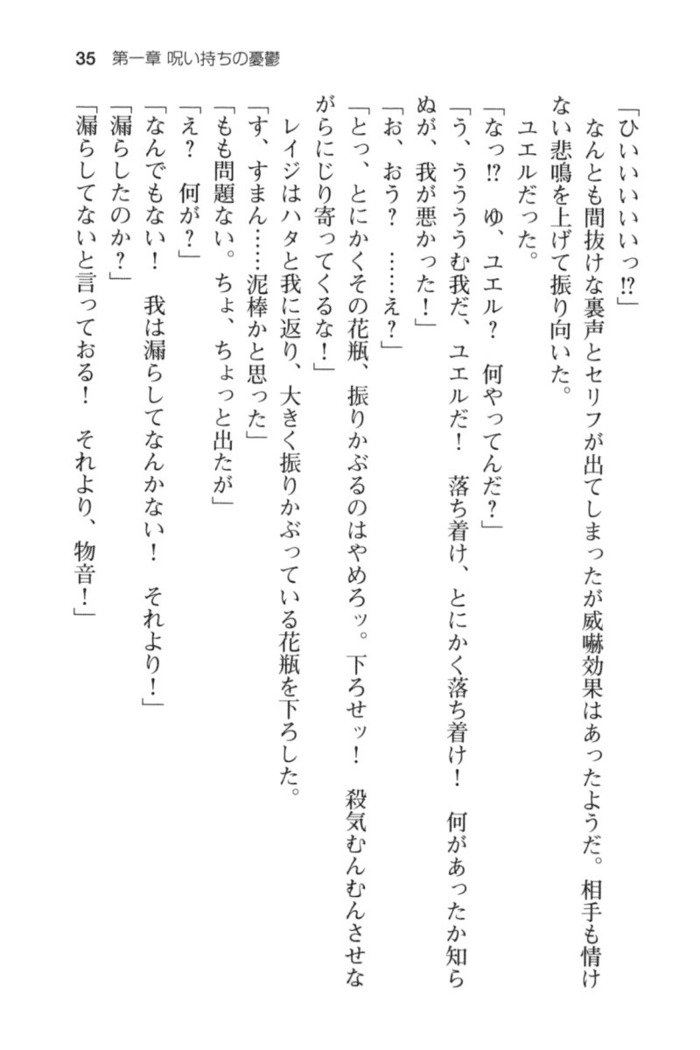 35　第一章 呪い持ちの憂鬱
「ひいいいいいっ!?」
　なんとも間抜けな裏声とセリフが出てしまったが威嚇効果はあったようだ。相手も情け
ない悲鳴を上げて振り向いた。
　ユエルだった。
「なっ!?　ゆ、ユエル？　何やってんだ？」
「う、うううむ我だ、ユエルだ！　落ち着け、とにかく落ち着け！　何があったか知ら
ぬが、我が悪かった！」
「お、おう？　……え？」
「とっ、とにかくその花瓶、振りかぶるのはやめろッ。下ろせッ！　殺気むんむんさせな
がらにじり寄ってくるな！」
　レイジはハタと我に返り、大きく振りかぶっている花瓶を下ろした。
「す、すまん……泥棒かと思った」
「もも問題ない。ちょ、ちょっと出たが」
「え？　何が？」
「なんでもない！　我は漏らしてなんかない！　それより！」
「漏らしたのか？」
「漏らしてないと言っておる！　それより、物音！」